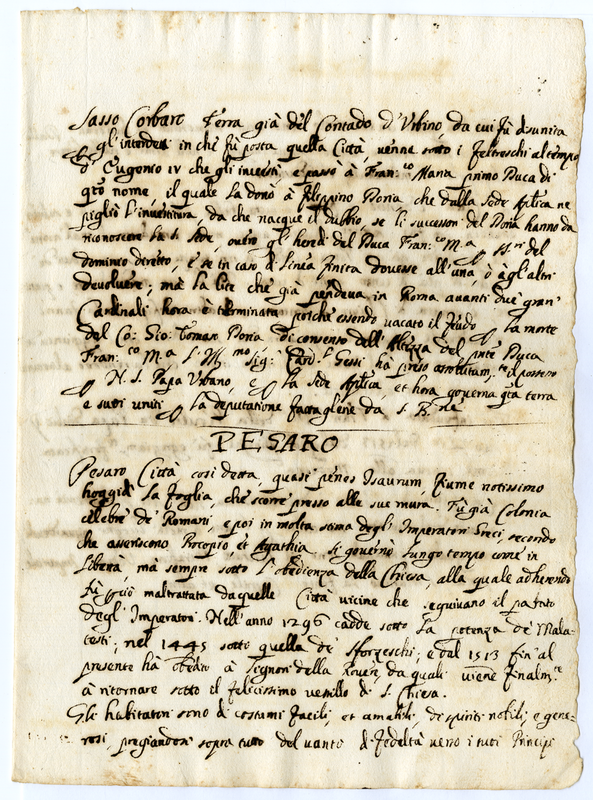 Sasso Corbaro Terra già del Contado d'Urbino, da cui fù disunita
gl'interdetti in che fù posta quella Città, venne sotto i Feltreschi al tempo
d'Eugenio IV che gli investì, e passò à Fran.co Maria primo Duca di
q.to nome, il quale la donò à Filippino Doria, che dalla Sede Aplica ne
pigliò l'investitura, da che nacque il dubbio se li successori del Doria hanno da
riconoscere la S. Sede, overo gl'heredi del Duca Fran.co M.a SS.ri del
dominio diretto, e se in caso di linea finita dovesse all'una, ò agl'altri
devolvere; mà la lite che già pendeva in Roma avanti due gran
Cardinali hora è terminata poiche essendo vacato il feudo la morte
del Co: Gio: Tomaso Doria di consenso dell'Altezza del Duca
Fran.co M.a l'Ill.mo Sig. Card.l Gessi hà preso assolutam.te il possesso
N. S. Papa Urbano, e la Sede Aplica, et hora governa q.ta terra
e suoi uniti la deputatione fattaglene da S. B.ne
PESARO
Pesaro Città così detta, quasi penes Isaurum, fiume notissimo
hoggidì la foglia, che scorre presso alle sue mura. Fù già Colonia
celebre de' Romani, e poi in molta stima degl'Imperatori Greci, secondo
che asseriscono Procopio, et Agathia. Si governò lungo tempo come in
libertà, mà sempre sotto l'obedienza della Chiesa, alla quale adherendo
fù maltrattata da quelle Città vicine che seguivano il partito
degl'Imperatori. Nell'anno 1296 cadde sotto la potenza de' Mala-
testi; nel 1445 sotto quella de' Sforzeschi; e dal 1513 fin'al
presente hà obedito à Signori della Rovere, da quali viene finalm.te
à ritornare sotto il felicissimo vesillo di S. Chiesa.
Gli habitatori sono di costumi facili, et amabili, di spiriti nobili, e gene-
rosi, pregiandosi sopra tutto del vanto di fedeltà verso i Principi